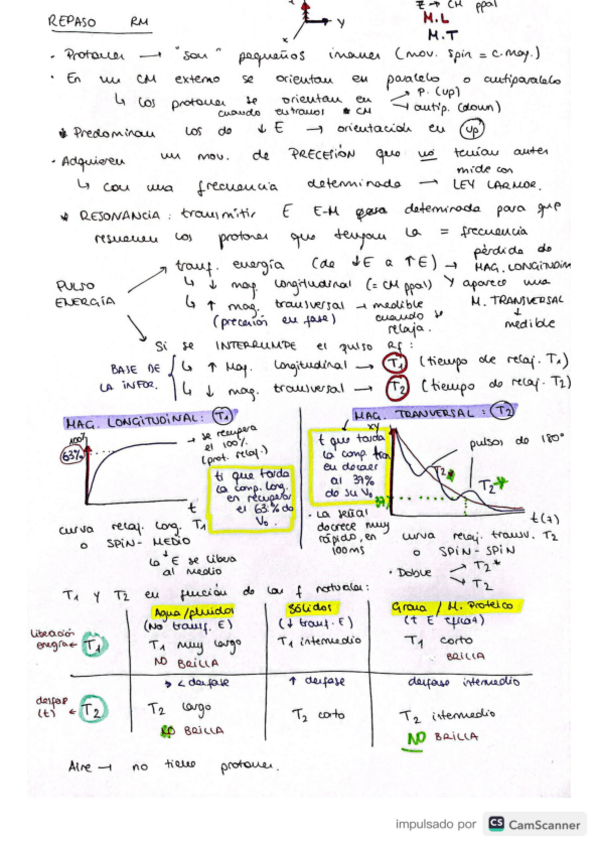 REPASO RM
Z → CM ppal
Y
X
M.L
M.T
· Protones → "son" pequeños imanes (mov. spin = c. mag.)
· En un CM externo se orientan en paralelo o antiparalelo
↳ Los protones se orientan en → P. (up)
cuando entramos CM → antip. (down)
* Predominan los de ↓ E → orientación en up
· Adquieren un mov. de PRECESIÓN que no tenían antes
↳ con una frecuencia determinada → mide con LEY LARMOR.
* RESONANCIA: transmitir E E-M para determinada para que
resuenen los protones que tengan la = frecuencia
PULSO ENERGÍA
transf. energía (de ↓E a ↑E) → pérdida de MAG. LONGITUDIN
↳ ↓ mag. longitudinal (= CM ppal) y aparece una
↳ ↑ mag. transversal → medible cuando se relaja. M. TRANSVERSAL
(precesión en fase) ↳ medible
Si se INTERRUMPE el pulso RF:
BASE DE LA INFOR.
↳ ↑ Mag. longitudinal → T1 (tiempo de relaj. T1)
↳ ↓ mag. transversal → T2 (tiempo de relaj. T2)
MAG. LONGITUDINAL: T1
100%
63%
→ se recupera el 100% (prot. relaj.)
t
ti que tarda la comp. long. en recuperar el 63% de V₀.
curva relaj. long. T1
o SPIN-MEDIO
la ↓E se libera al medio
MAG. TRANVERSAL: T2
t que tarda la comp. tra en decaer al 37% de su V₀
· La señal decrece muy rápido, en 100ms
xy
37
pulsos de 180°
T2*
T2*
t(7)
curva relaj. transv. T2
o SPIN-SPIN
· Doble → T2*
→ T2
T1 Y T2 en función de las f naturales:
Agua/fluidos
(No transf. E)
Sólidos
(↓ transf. E)
Grasa / M. Proteico
Liberación energía ← T1
T1 muy largo
NO BRILLA
T1 intermedio
T1 corto
BRILLA
< desfase
↑ desfase
desfase intermedio
desfase (t) ← T2
T2 largo
BRILLA
T2 corto
T2 intermedio
NO BRILLA
Aire → no tiene protones.
impulsado por CS CamScanner